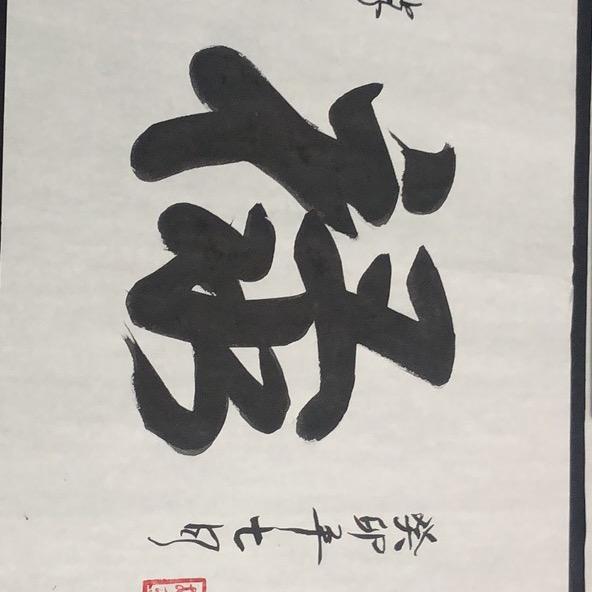 禄
癸卯年七月